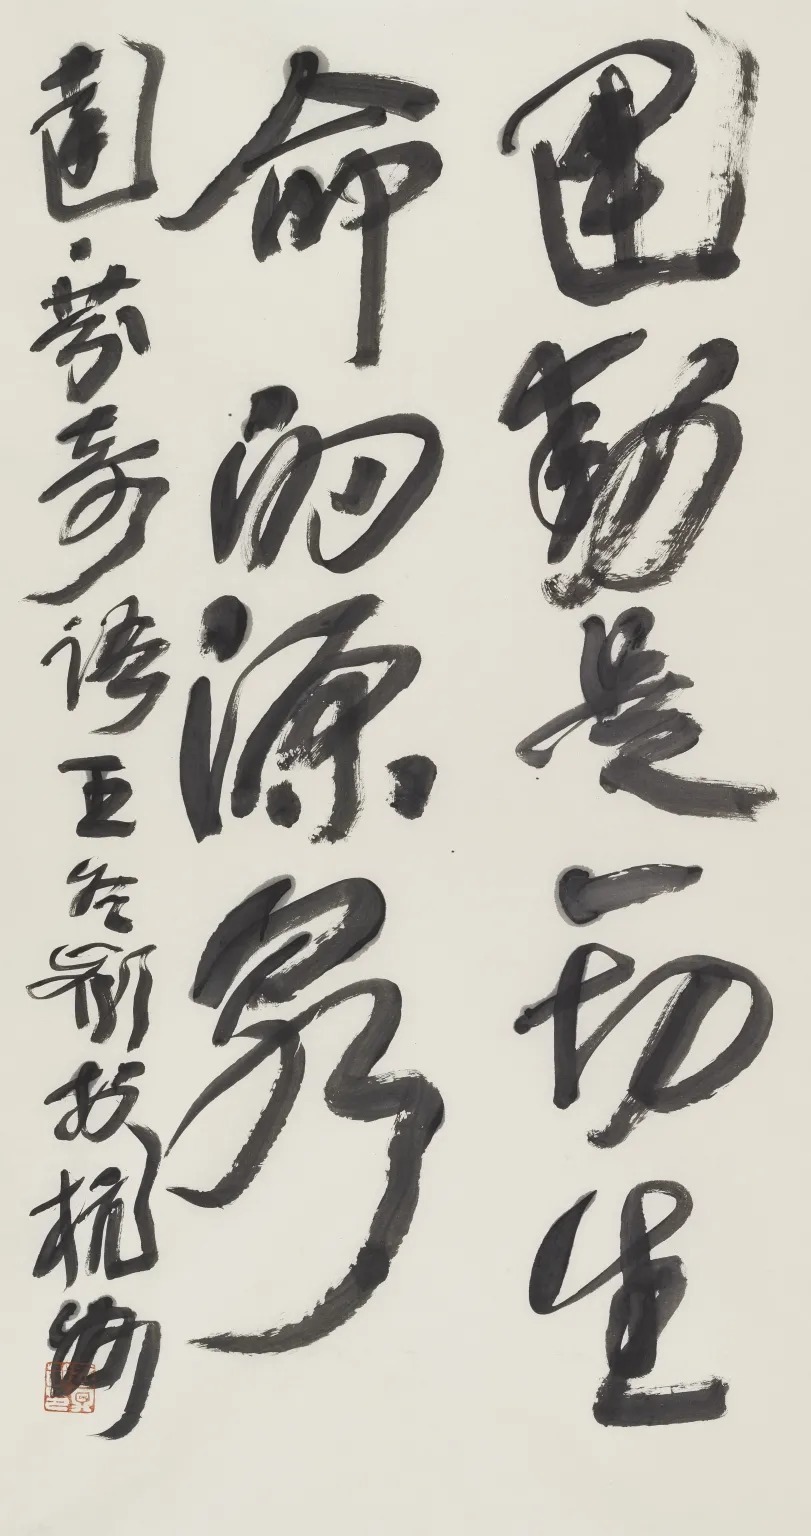 運動是一切生
命的源泉
達·芬奇語 王冬齡於杭州